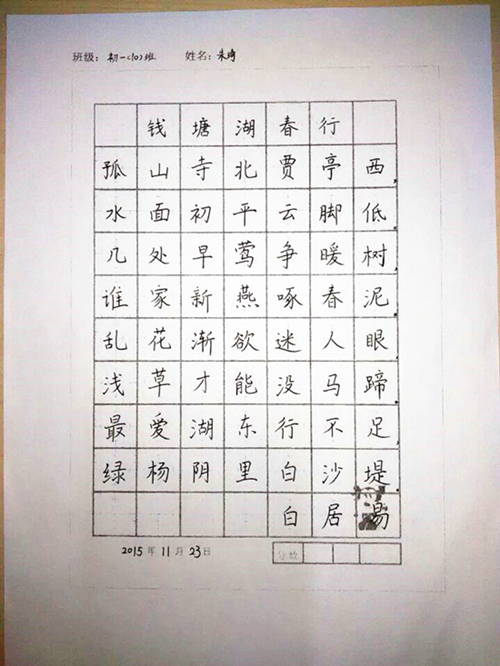 班级：初一(10)班 姓名：朱琦
钱塘湖春行
孤山寺北贾亭西，
水面初平云脚低。
几处早莺争暖树，
谁家新燕啄春泥。
乱花渐欲迷人眼，
浅草才能没马蹄。
最爱湖东行不足，
绿杨阴里白沙堤。
白居易
2015年11月23日 分数